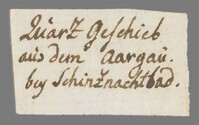 Quarz Geschieb
aus dem Aargau.
bey Schinznachtbad.